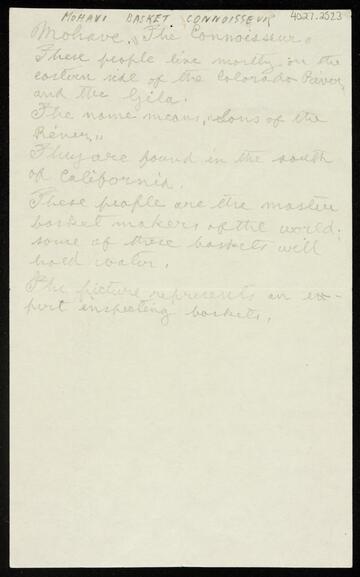 MOHAVI BASKET CONNOISSEUR 4027.2523
Mohave, "The Connoisseur"
These people live mostly on the
eastern side of the Colorado River,
and the Gila.
The name means, "Sons of the
River"
They are found in the south
of California.
These people are the master
basket makers of the world;
some of these baskets will
hold water.
The picture represents an ex-
pert inspecting baskets.